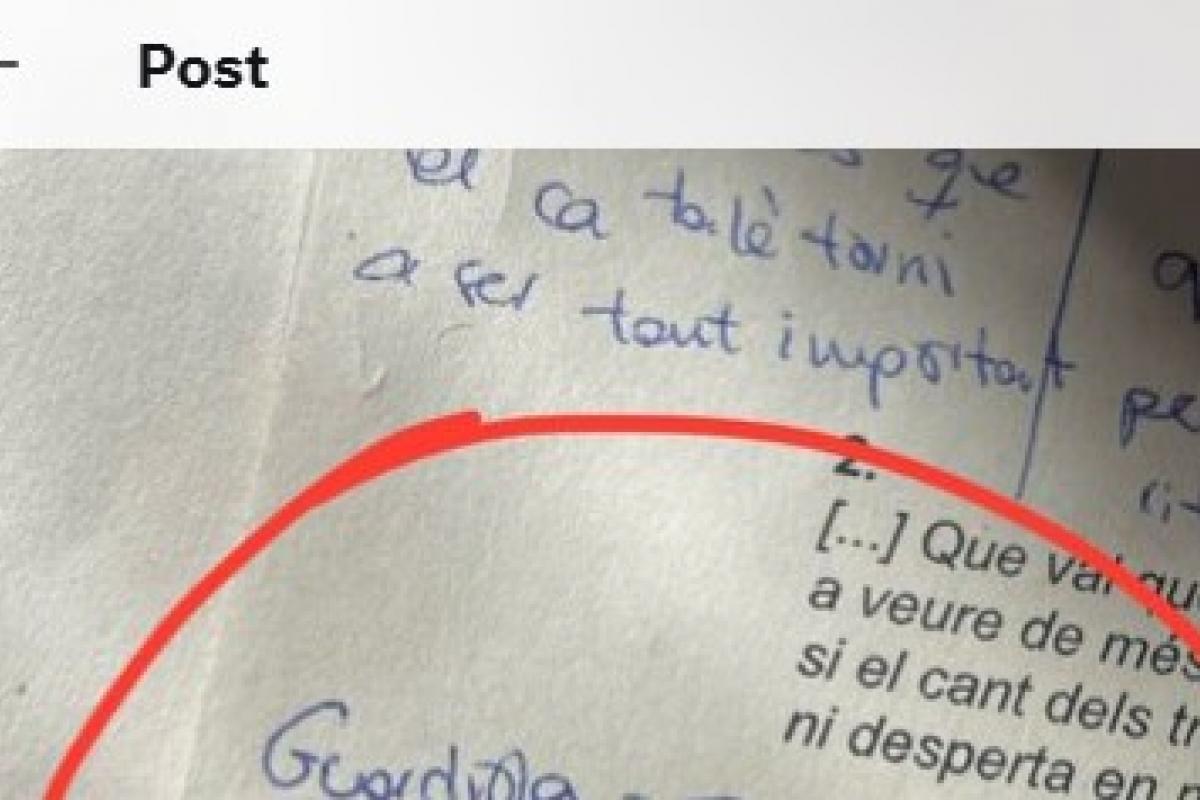 Post
el que
ca talè torni
a ser tant important
pe
2.
[...] Que val qu
a veure de més
si el cant dels tr
ni desperta en
Guardiola